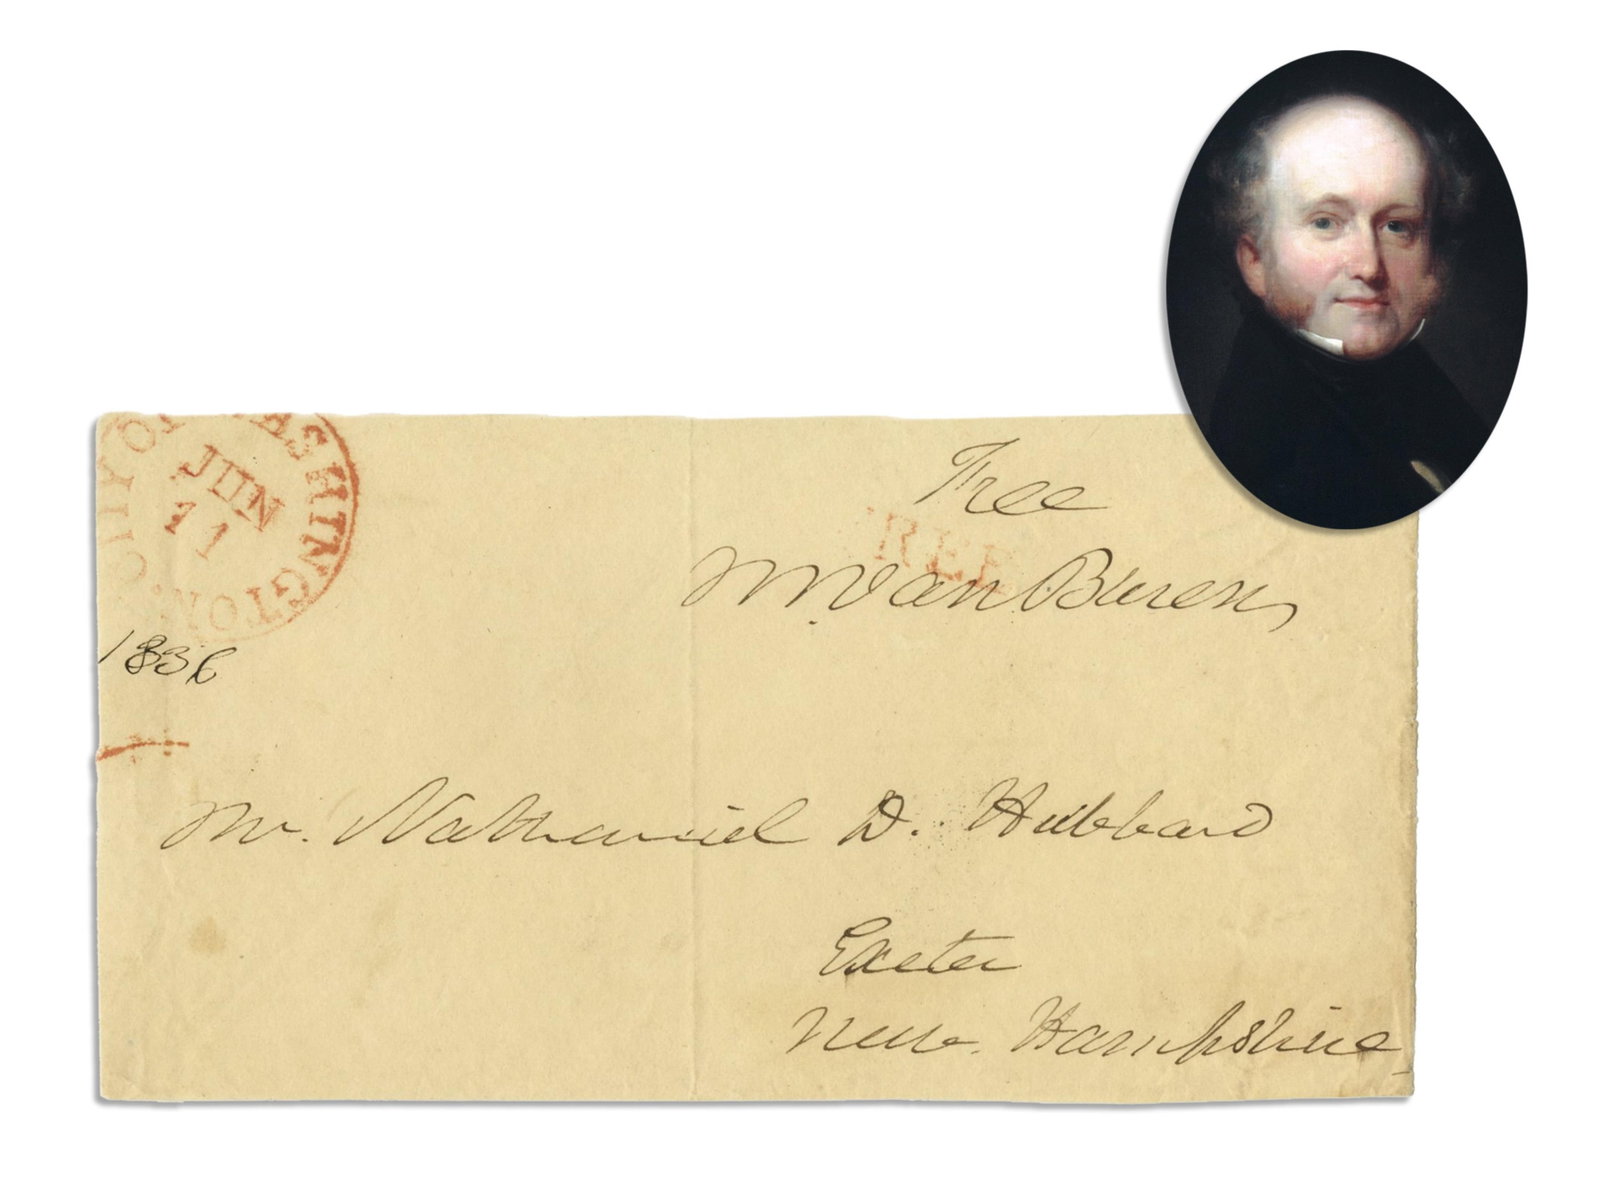 CITY OF WASHINGTON
JUN
11
Free
FREE
MVan Buren
1836
Mr. Nathaniel D. Hubbard
Exeter
New Hampshire